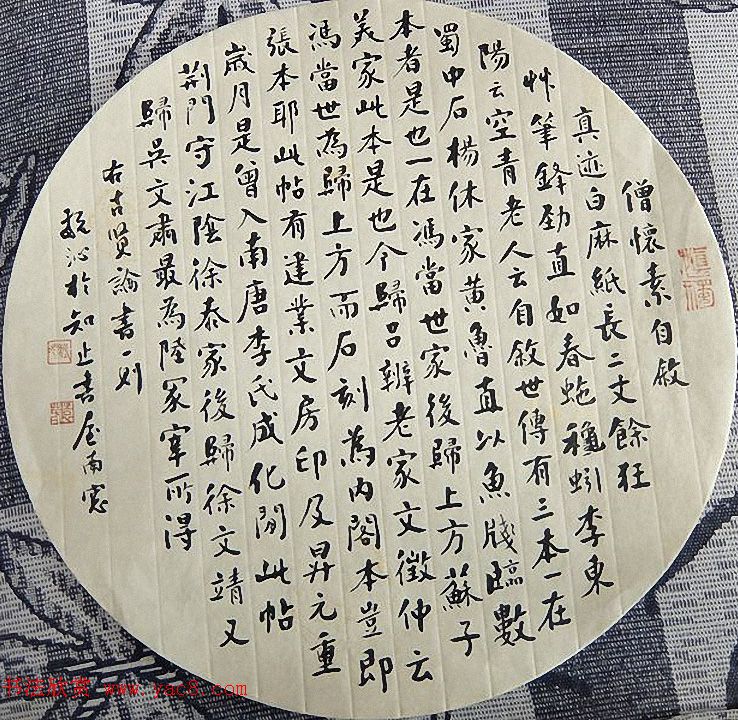 僧懷素自敘
真迹白麻紙長二丈餘狂
艸筆鋒勁直如春虵穐蚓李東
陽云空青老人云自敘世傳有三本一在
蜀中石楊休家黄魯直以魚牋臨數
本者是也一在馮當世家後歸上方蘇子
美家此本是也今歸吕辨老家文徵仲云
馮當世為歸上方而石刻為内閣本豈即
張本耶此帖有建業文房印及昇元重
歲月是曾入南唐李氏成化間此帖
荆門守江陰徐泰家後歸徐文靖又
歸吴文肅最為陸冢宰所得
右古賢論書一則
於知止書屋南窓
书法欣赏 www.yac8.com